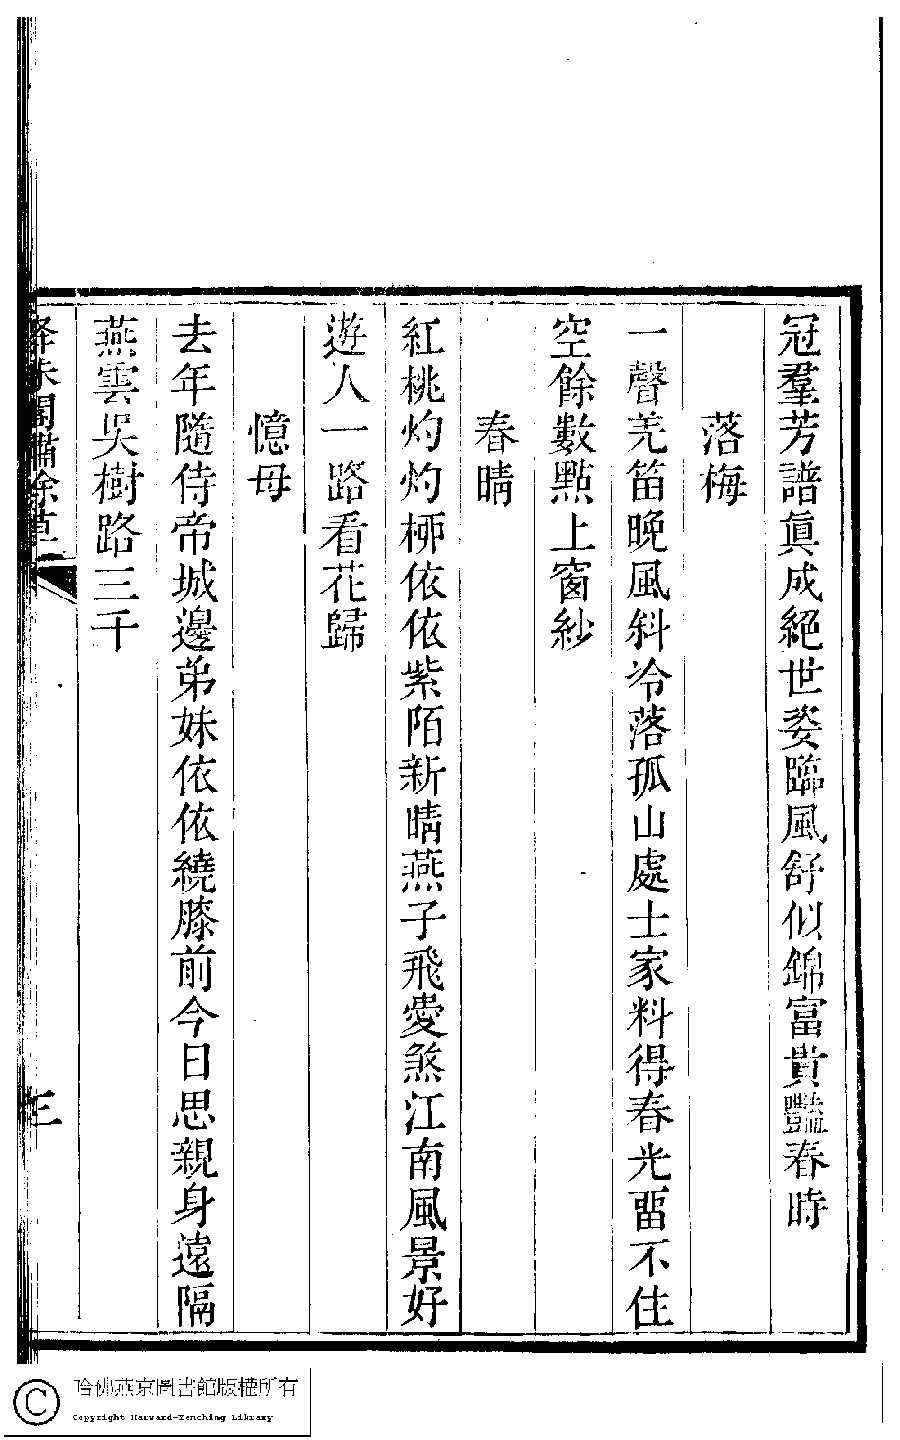 冠羣芳譜眞成絕世姿臨風舒似錦富貴豔春時
落梅
一聲羌笛晚風斜冷落孤山處士家料得春光畱不住
空餘數點上窗紗
春晴
紅桃灼灼桺依依紫陌新晴燕子飛愛煞江南風景好
遊人一路看花歸
憶母
去年隨侍帝城邊弟妹依依繞膝前今日思親身遠隔
燕雲吳樹路三千
三
哈佛燕京圖書館版權所有
Copyright Harvard-Yenching Library